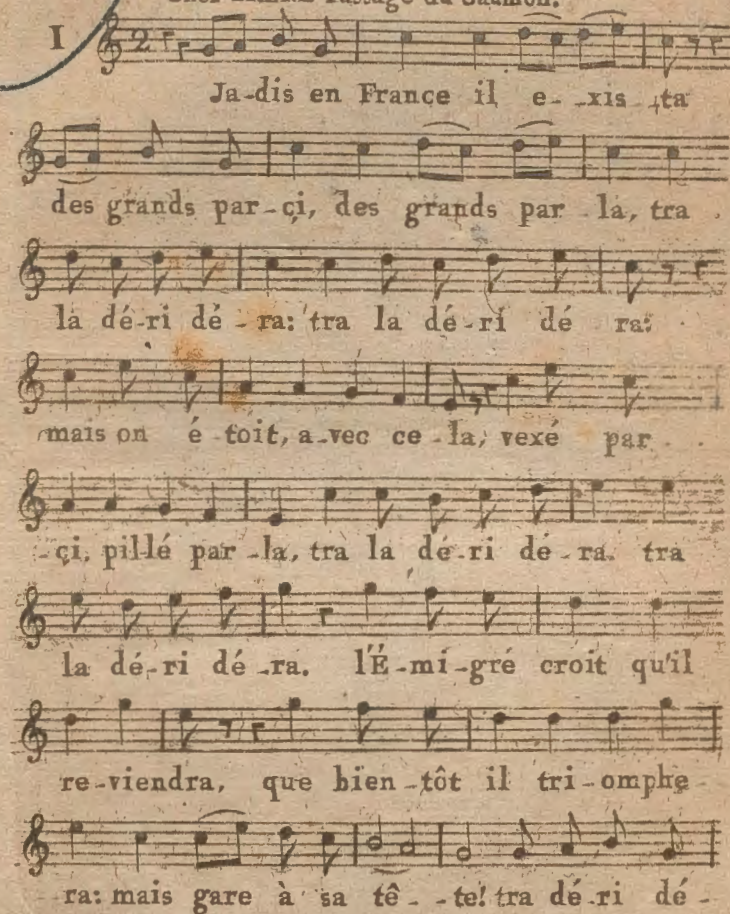 Passage du Saumon.
I
Ja-dis en France il e-xis-ta
des grands par-çi, des grands par la, tra
la dé-ri dé-ra: tra la dé-ri dé ra:
mais on é-toit, a-vec ce-la, vexé par
-çi, pillé par-la, tra la dé-ri dé-ra. tra
la dé-ri dé-ra. l'É-mi-gré croit qu'il
re-viendra, que bien-tôt il tri-omphe-
ra: mais gare à sa tê-te! tra dé-ri dé-